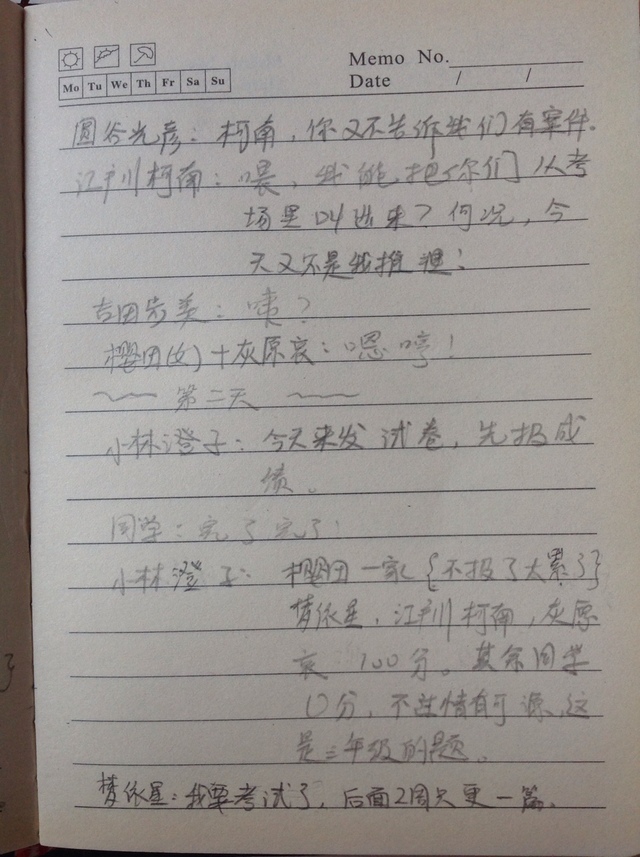 Memo No.
Mo Tu We Th Fr Sa Su
Date / /
圆谷光彦：柯南，你又不告诉我们有案件。
江户川柯南：喂，我能把你们从考
场里叫出来？何况，今
天又不是我推理！
吉田步美：咦？
樱田(女)＋灰原哀：嗯哼！
第二天
小林澄子：今天来发试卷，先报成
绩。
同学：完了完了！
小林澄子：樱田一家{不报了太累了}
梦依星，江户川柯南，灰原
哀 100分。其余同学
10分，不过情有可源，这
是三年级的题。
梦依星：我要考试了，后面2周只更一篇。